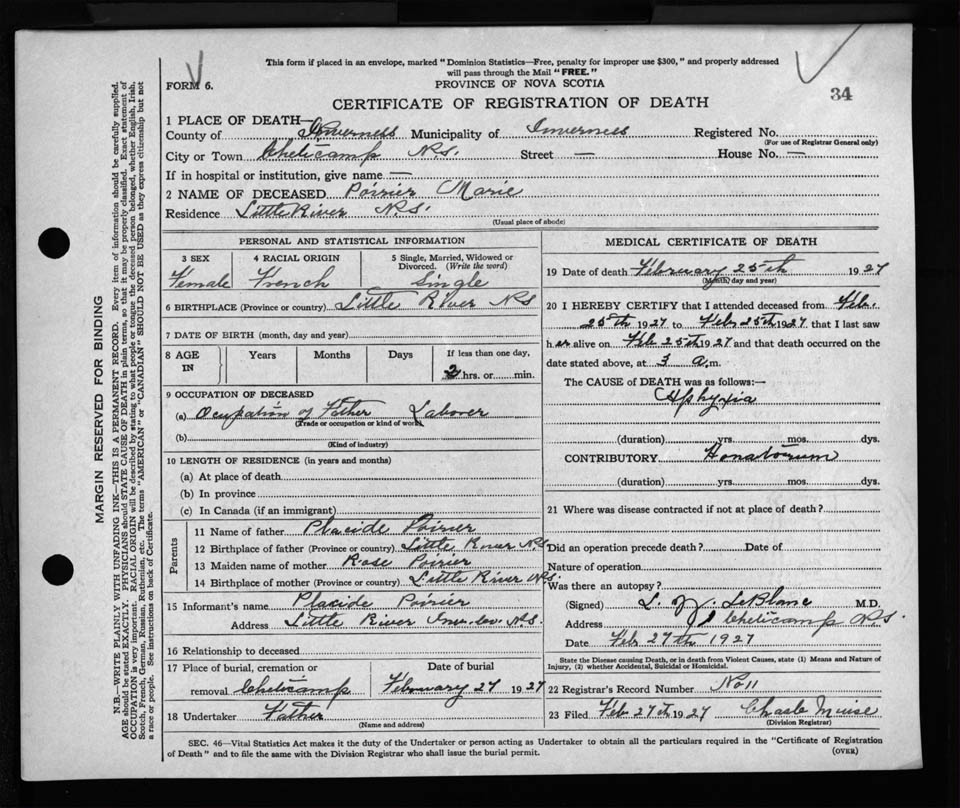 This form if placed in an envelope, marked "Dominion Statistics—Free, penalty for improper use $300," and properly addressed
will pass through the Mail "FREE."
FORM 6.
PROVINCE OF NOVA SCOTIA
34
CERTIFICATE OF REGISTRATION OF DEATH
1 PLACE OF DEATH—
County of Inverness Municipality of Inverness Registered No.
(For use of Registrar General only)
City or Town Cheticamp N.S. Street — House No. —
If in hospital or institution, give name —
2 NAME OF DECEASED Poirier Marie
Residence Little River N.S.
(Usual place of abode)
PERSONAL AND STATISTICAL INFORMATION
3 SEX 4 RACIAL ORIGIN 5 Single, Married, Widowed or
Divorced. (Write the word)
Female French Single
6 BIRTHPLACE (Province or country) Little River N.S.
7 DATE OF BIRTH (month, day and year)
8 AGE IN Years Months Days If less than one day,
2 hrs. or min.
9 OCCUPATION OF DECEASED
(a) Ocupation of Father Laborer
(Trade or occupation or kind of work)
(b)
(Kind of industry)
10 LENGTH OF RESIDENCE (in years and months)
(a) At place of death
(b) In province
(c) In Canada (if an immigrant)
Parents
11 Name of father Placide Poirier
12 Birthplace of father (Province or country) Little River N.S.
13 Maiden name of mother Rose Poirier
14 Birthplace of mother (Province or country) Little River N.S.
15 Informant's name Placide Poirier
Address Little River Inv. Co. N.S.
16 Relationship to deceased
17 Place of burial, cremation or Date of burial
removal Cheticamp February 27 1927
18 Undertaker Father
(Name and address)
MEDICAL CERTIFICATE OF DEATH
19 Date of death February 25th 1927
(Month, day and year)
20 I HEREBY CERTIFY that I attended deceased from Feb.
25th 1927 to Feb 25th 1927 that I last saw
her alive on Feb 25th 1927 and that death occurred on the
date stated above, at 3 a.m.
The CAUSE OF DEATH was as follows:—
Aphyxia
(duration) yrs. mos. dys.
CONTRIBUTORY
(duration) yrs. mos. dys.
21 Where was disease contracted if not at place of death?
Did an operation precede death? Date of
Nature of operation
Was there an autopsy?
(Signed) L. LeBlanc M.D.
Address Cheticamp N.S.
Date Feb 27th 1927
State the Disease causing Death, or in death from Violent Causes, state (1) Means and Nature of
Injury, (2) whether Accidental, Suicidal or Homicidal.
22 Registrar's Record Number No 11
23 Filed Feb 27th 1927 Chasle Muise
(Division Registrar)
SEC. 46—Vital Statistics Act makes it the duty of the Undertaker or person acting as Undertaker to obtain all the particulars required in the "Certificate of Registration
of Death" and to file the same with the Division Registrar who shall issue the burial permit.
(OVER)
MARGIN RESERVED FOR BINDING
N.B.—WRITE PLAINLY WITH UNFADING INK—THIS IS A PERMANENT RECORD. Every item of information should be carefully supplied.
AGE should be stated EXACTLY. PHYSICIANS should STATE CAUSE OF DEATH in plain terms, so that it may be properly classified. Exact statement of
OCCUPATION is very important. RACIAL ORIGIN will be described by stating to what people or tongue the deceased person belonged, whether English, Irish,
Scotch, French, German, Russian, Ruthenian, etc. The terms "AMERICAN" or "CANADIAN" SHOULD NOT BE USED as they express citizenship but not
a race or people. See instructions on back of Certificate.